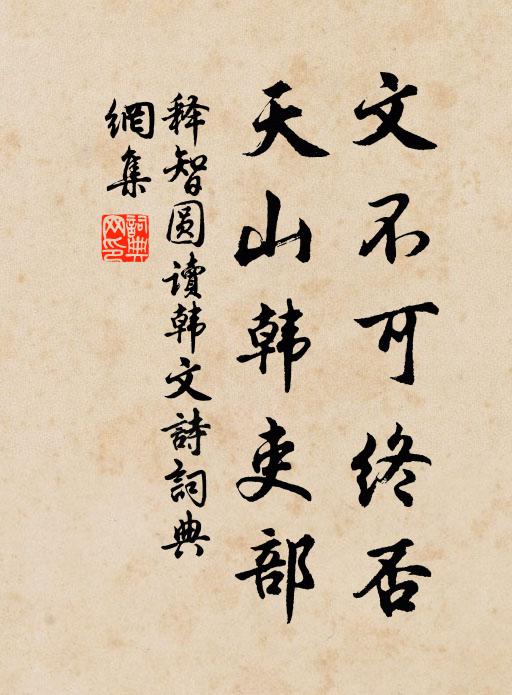 文不可终否
天山韩吏部
释智圆读韩文詩詞典
網集
詞典网印